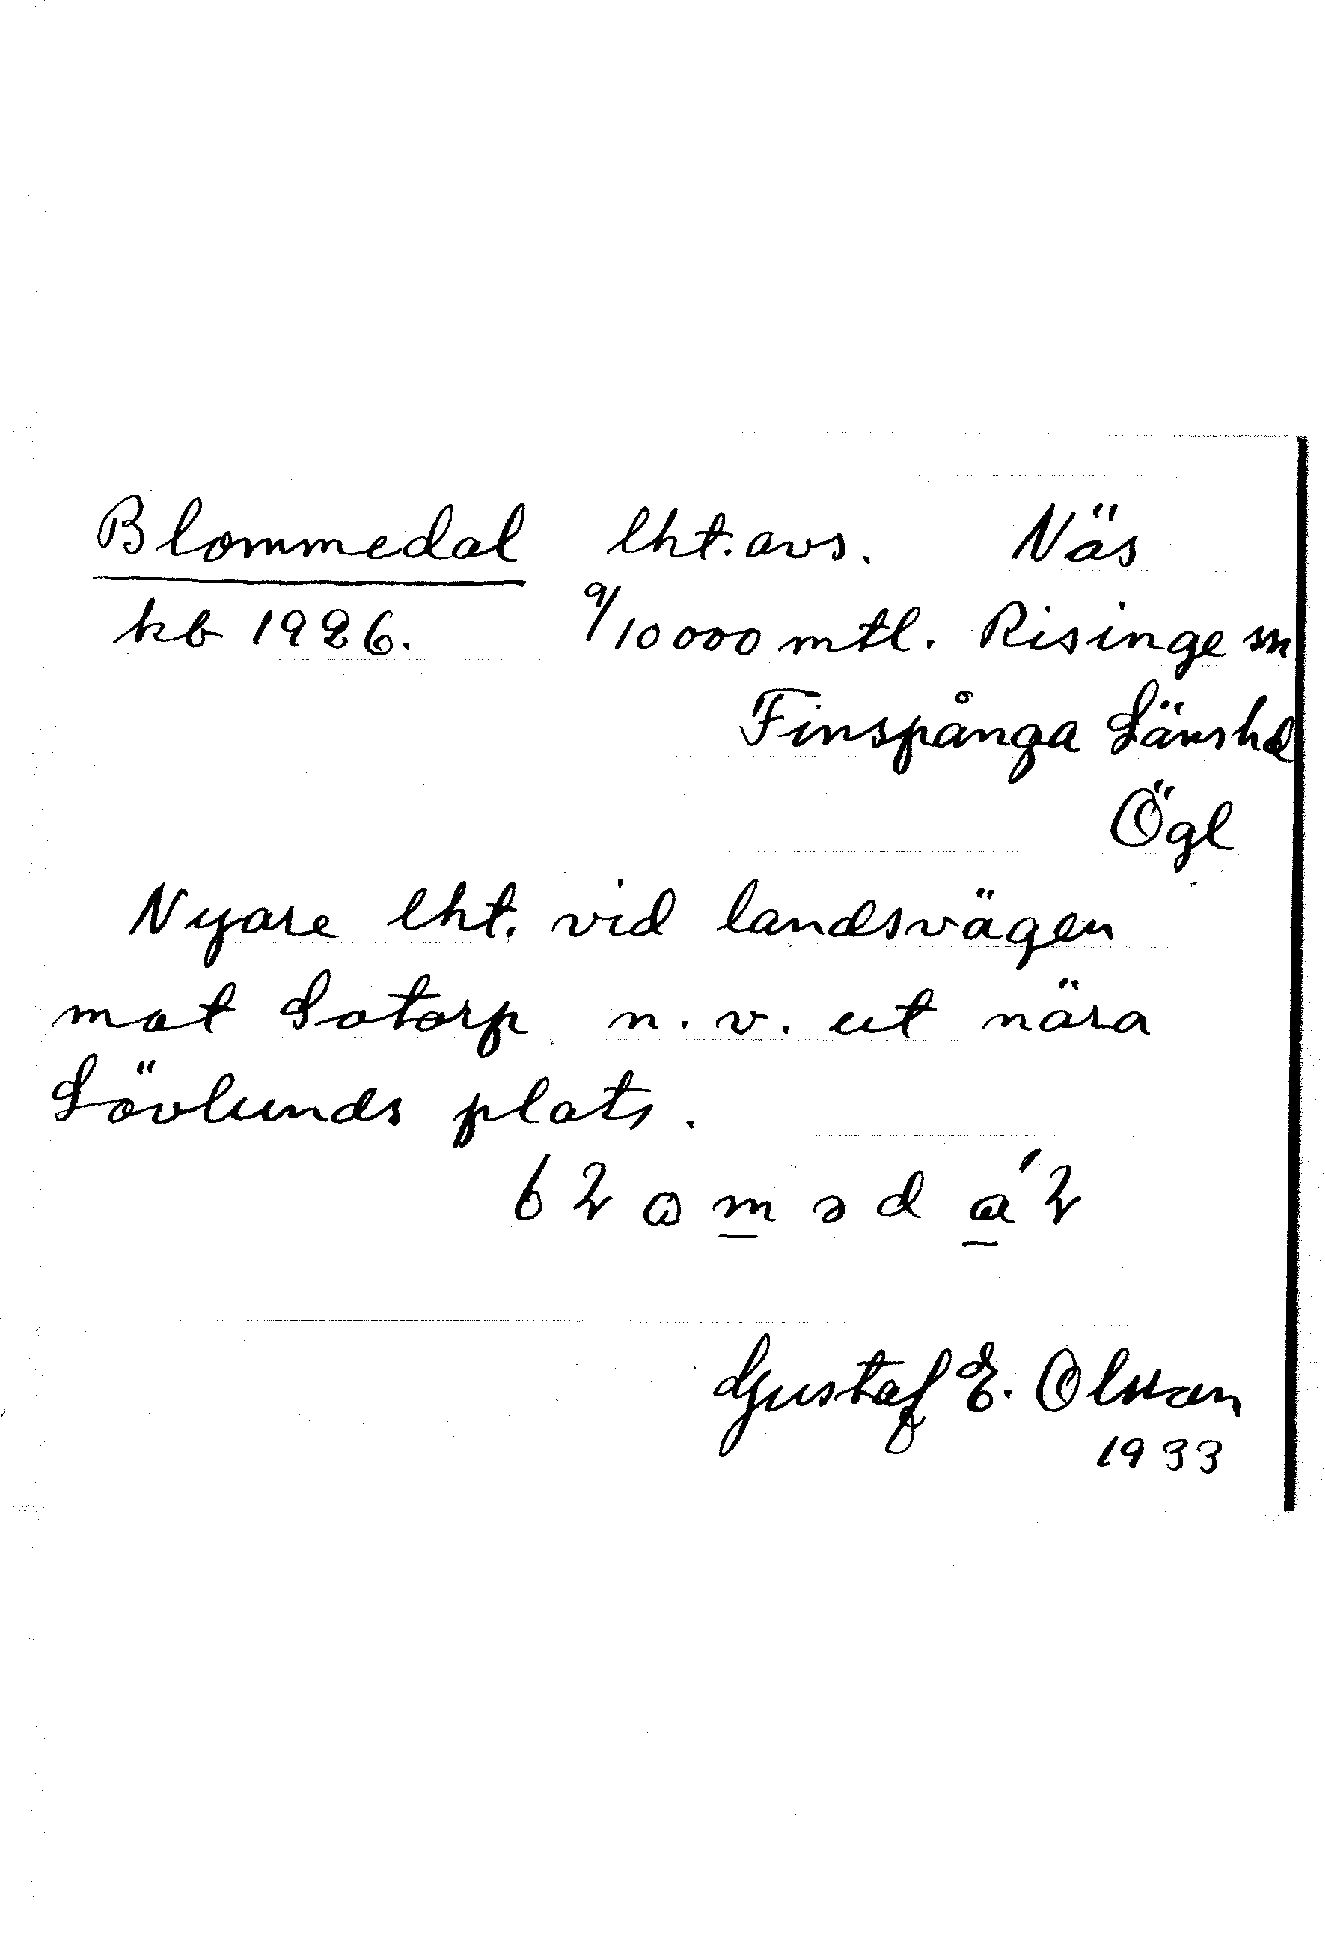 Blommedal lht. avs. Näs
kb 1926. 9/10000 mtl. Risinge sn
Finspånga Länshd
Ögl
Nyare lht. vid landsvägen
mot Sotorp n.v. ut nära
Lövlunds plats.
Gustaf E. Olsson
1933